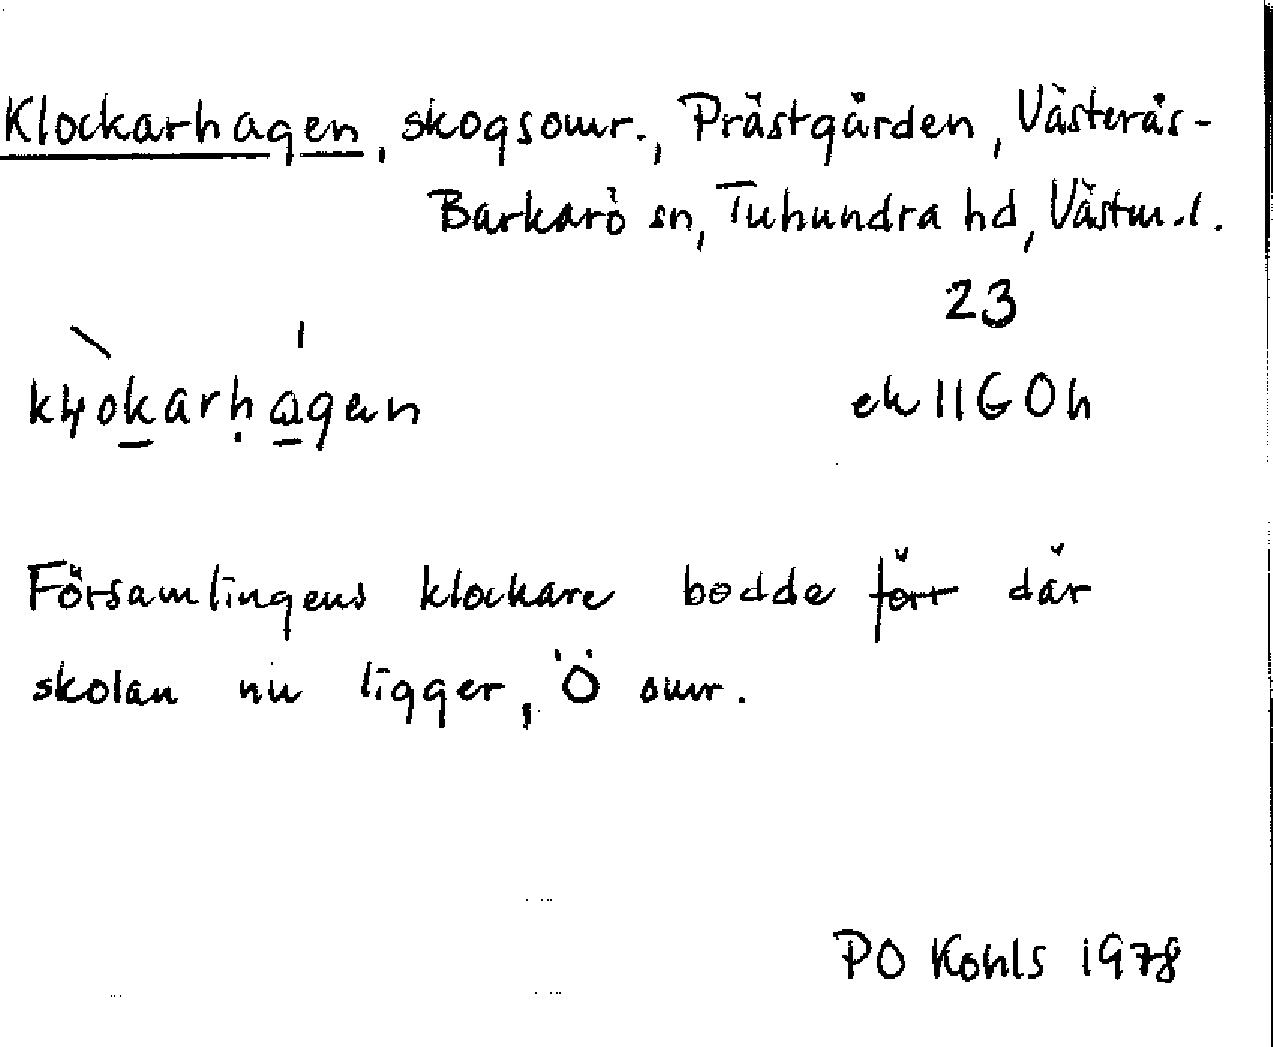 Klockarhagen, skogsomr., Prästgården, Västerås-
Barkarö sn, Tuhundra hd, Västm.l.
23
ek 11G0h
Församlingens klockare bodde förr där
skolan nu ligger, Ö omr.
PO Kohls 1978